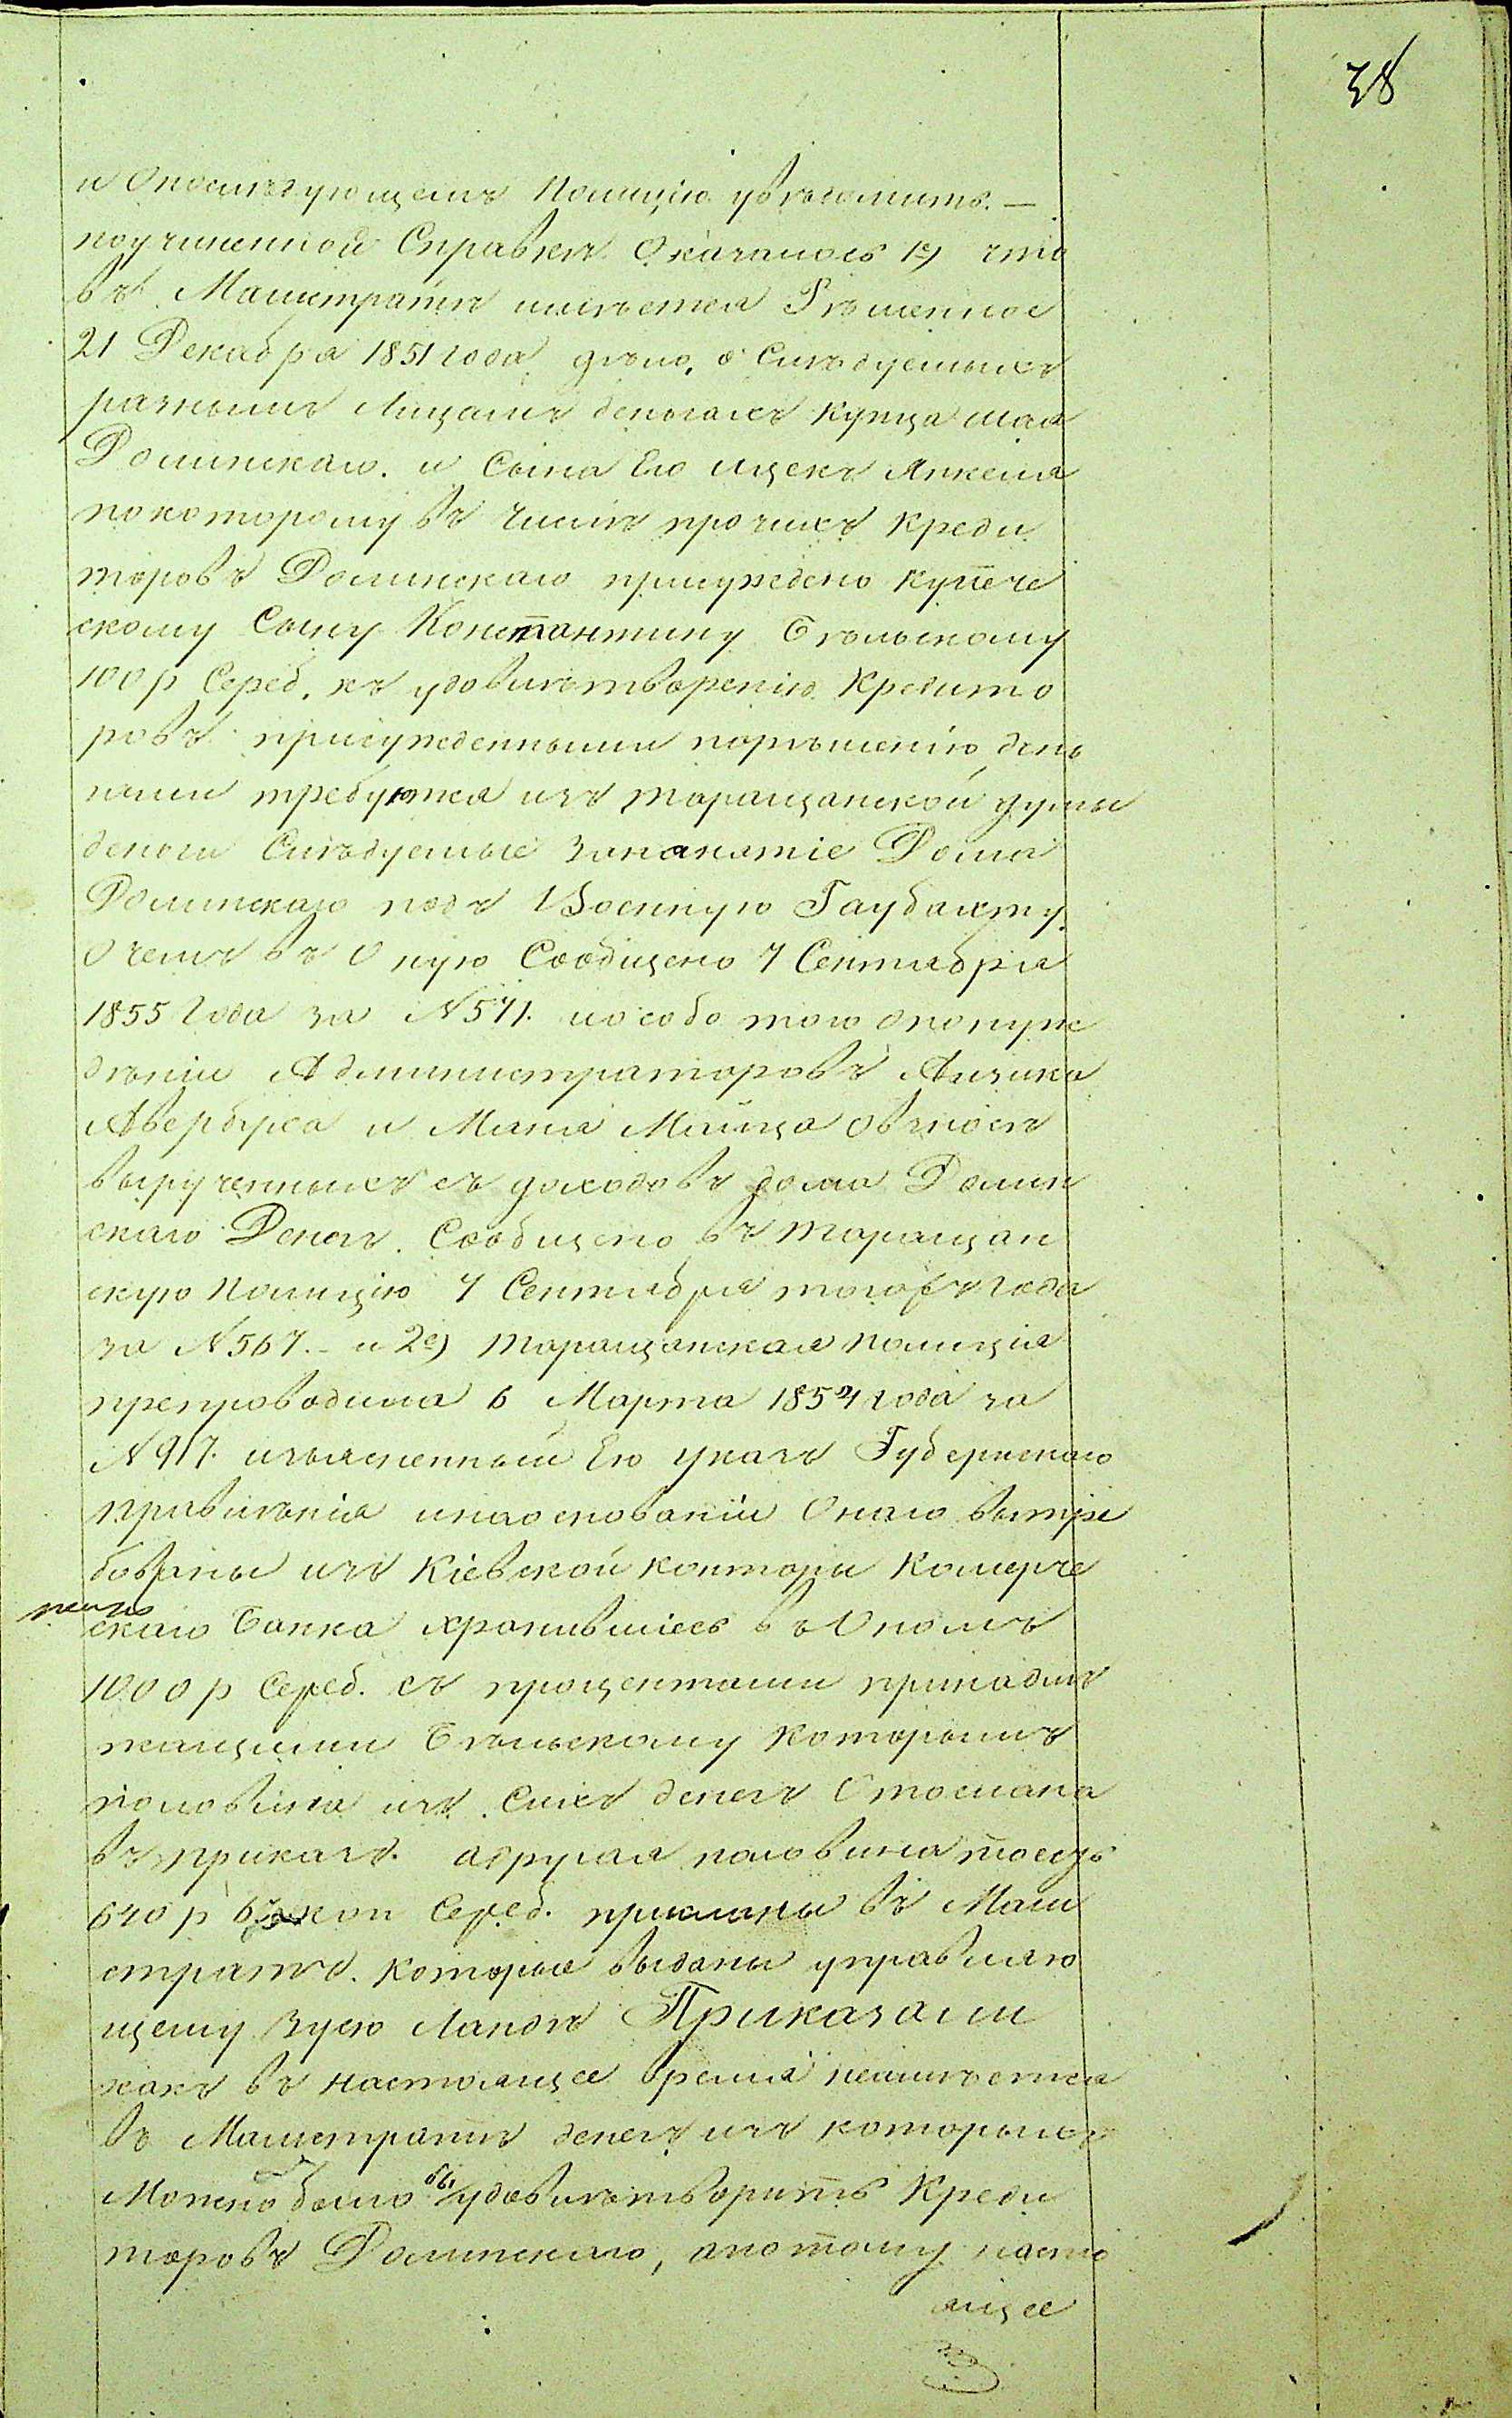 38
и О послѣдующемъ Полицію увѣдомить. —
по учиненной Справкѣ Оказалось 1е) что
въ Магистратѣ имѣется Рѣшенное
21 Декабря 1851 года дѣло, о Слѣдуемыхъ
разнымъ Лицамъ деньгахъ купца
Долинскаго. и Сына Его Ицека Янкеля
по которому въ числѣ прочихъ Креди
торовъ Долинскаго присуждено купече
скому Сыну Константину Бѣльскому
100 р Сереб. къ удовлѣтворенію Кредито
ровъ присужденными по рѣшенію день
гами требуются изъ Таращанской думы
деньги Слѣдуемые за нанятіе Дома
Долинскаго подъ Военную Гаубахту,
О чемъ въ Оную Сообщено 7 Сентября
1855 Года за № 571. и особо того о понуж
дѣніи Администраторовъ Айзика
Авербуха и Маня о взносѣ
вырученныхъ съ доходовъ дома Долин
скаго Денегъ. Сообщено въ Таращан
скую Полицію 7 Сентября тогожъ Года
за № 567. – и 2е) Таращанская Полиція
препроводила 6 Марта 1854 года за
№ 917. изъясненный Ею указъ Губернскаго
Правлѣнія и на основаніи Онаго вытре
бованы изъ Кіевской Конторы Комерче
скаго Банка хранившіесь въ Ономъ
1000 р Сереб. съ процентами принадлѣ
жащими Бѣльскому Которымъ
половина изъ Сихъ денегъ Отослана
въ приказъ. а другая половина тоесть
640 р коп Сереб. присланы въ Маги
стратъ. Которые выданы управляю
щему Зусю Приказали
какъ въ настоящее время неимѣется
въ Магистратѣ денегъ изъ которыхъ
Можно было бы удовлѣтворить Креди
торовъ Долинскаго, а потому насто
ящее